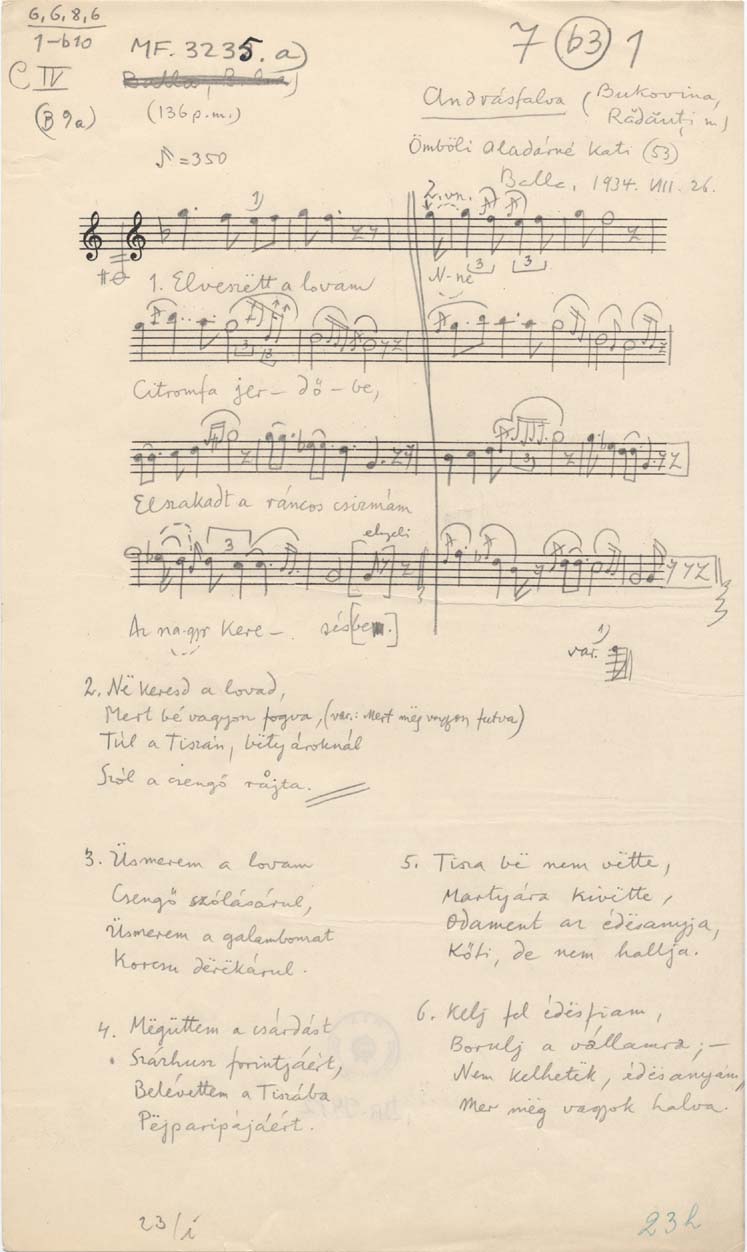 6, 6, 8, 6
1-b10
C IV
(B 9a)
MF. 3235. a)
(136 p.m.)
♪ = 350
7 (b3) 1
Andrásfalva (Bukovina,
Rădăuți m)
Ömböli Aladárné Kati (53)
Balla, 1934. VIII. 26.
1)
2. vn.
3
3
1. Elveszëtt a lovam
N-ne
Citromfa jer – dő – be,
Elszakadt a ráncos csizmám
3
elnyeli
Az na-gyr kere – sésbe[n.]
1)
var.
2. Në keresd a lovad,
Mert bé vagyon fogva, (var.: Mert mëg vagyon futva)
Túl a Tiszán, bëtyároknál
Szól a csengő råjta.
3. Üsmerem a lovam
Csengő szólásárul,
Üsmerem a galambomat
Korcsu dërëkárul.
4. Mëgüttem a csárdást
Százhusz forintjáért,
Belévettem a Tiszába
Pëjparipájáért.
5. Tisza bë nem vëtte,
Martyára kivëtte,
Odament az édësanyja,
Kőti, de nem hallja.
6. Kelj fel édësfiam,
Borulj a vállamra; –
Nem kelhetëk, édësanyám,
Mer mëg vagyok halva.
23/i
23h